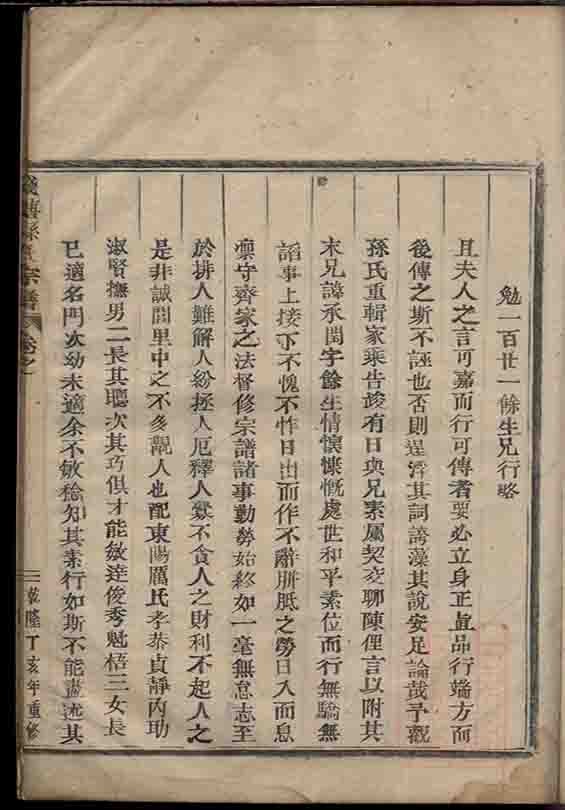 勉一百廿一餘生兄行略
且夫人之言可嘉而行可傳者要必立身正直品行端方而
後傳之斯不誣也否則逞浮其詞誇藻其說安足論哉予觀
孫氏重輯家乘告竣有日與兄素屬契交聊陳俚言以附其
末兄諱承閏字餘生情懷慷慨處世和平素位而行無驕無
諂事上接下不愧不怍日出而作不辭胼胝之勞日入而息
凜守齊家之法督修宗譜諸事勤勞始終如一毫無怠志至
於排人難解人紛拯人厄釋人纍不貪人之財利不起人之
是非誠閭里中之不多覯人也配東陽厲氏孝恭貞靜內助
淑賢撫男二長其聰次其巧俱才能敏達俊秀魁梧三女長
已適名門次幼未適余不敏稔知其素行如斯不能盡述其
孫氏宗譜 卷之
乾隆丁亥年重修